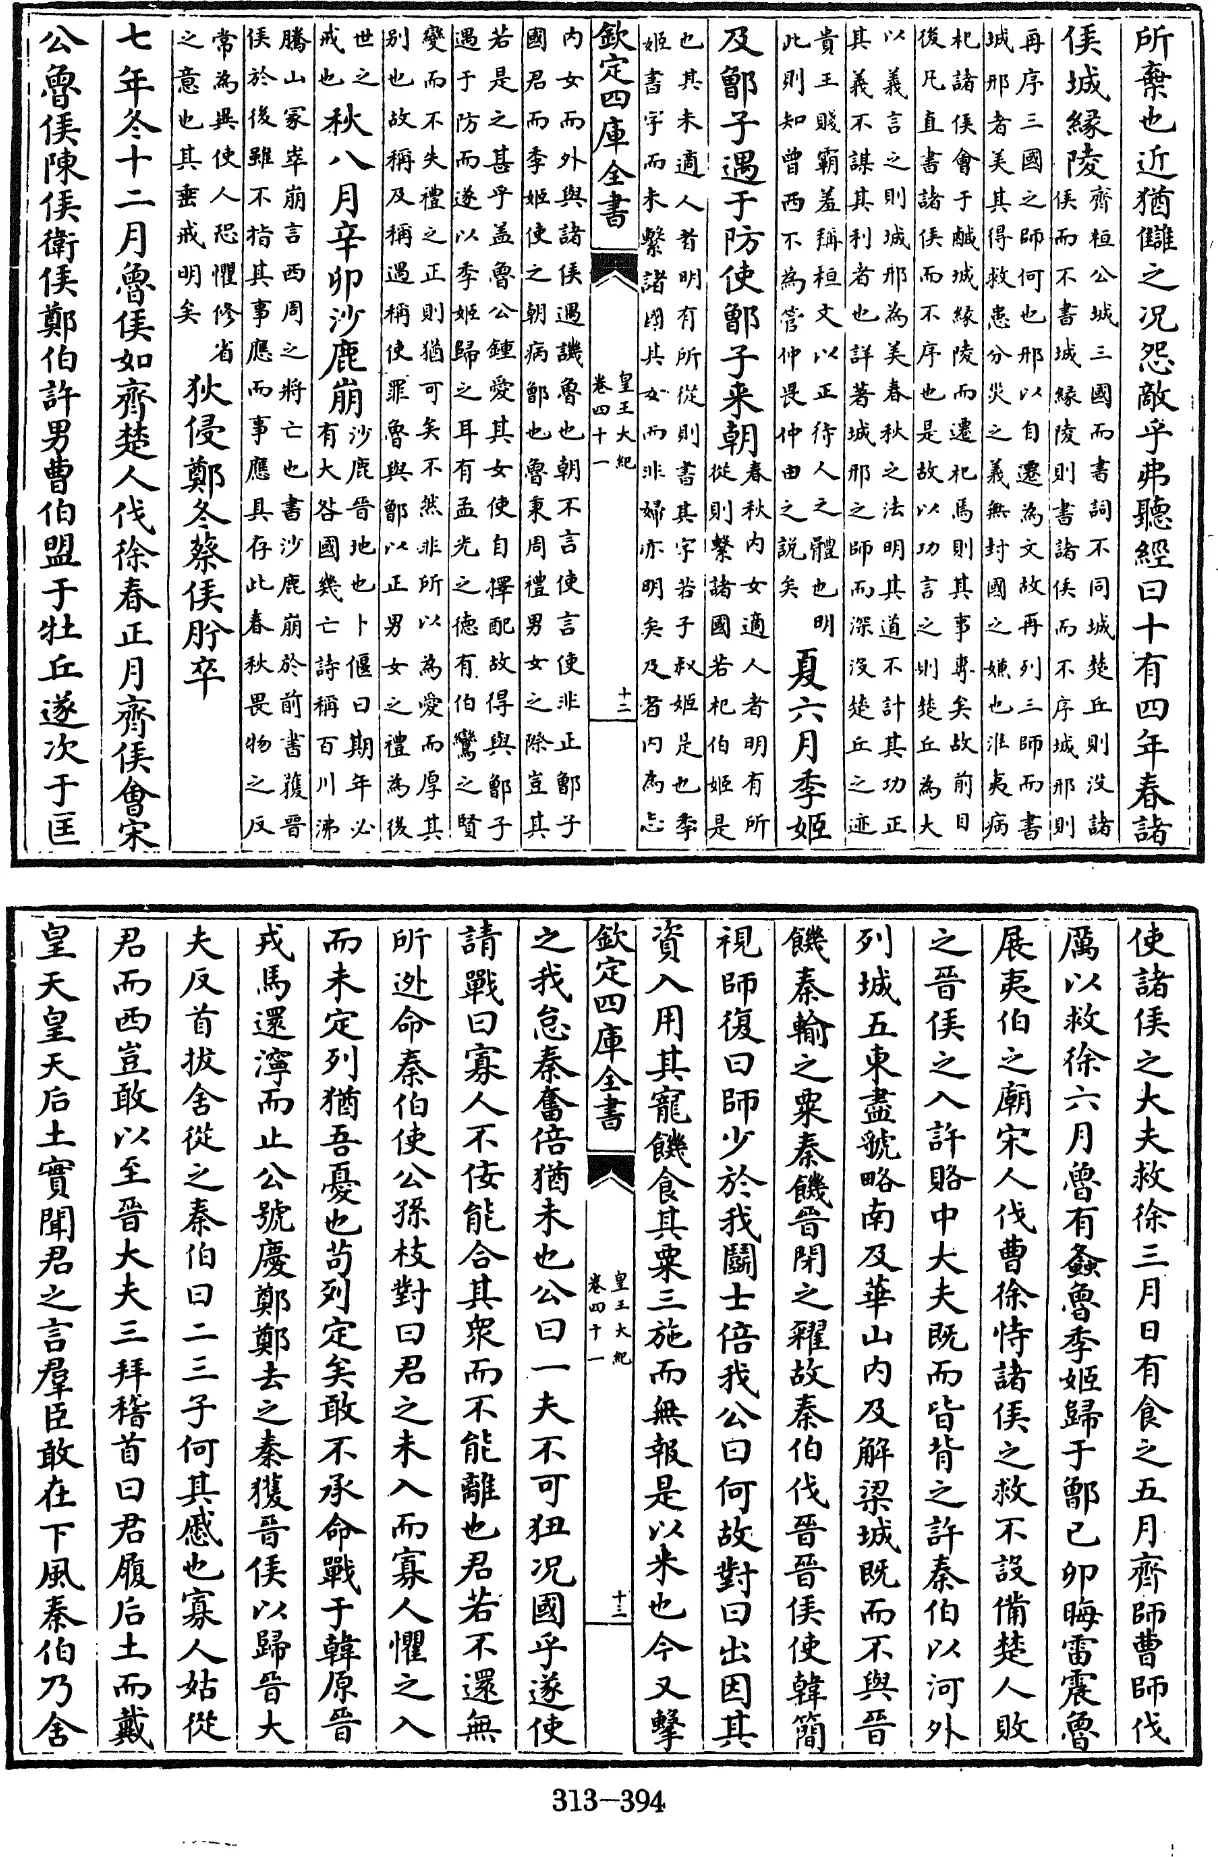 所棄也近猶讎之况怨敵乎弗聽經曰十有四年春諸
侯城緣陵
齊桓公城三國而書詞不同城楚丘則没諸
侯而不書城緣陵則書諸侯而不序城邢則
再序三國之師何也邢以自遷為文故再列三師而書
城邢者美其得救患分災之義無封國之嫌也淮夷病
杞諸侯會于鹹城緣陵而遷杞焉則其事專矣故前目
後凡直書諸侯而不序也是故以功言之則楚丘為大
以義言之則城邢為美春秋之法明其道不計其功正
其義不謀其利者也詳著城邢之師而深没楚丘之迹
貴王賤霸羞稱桓文以正待人之體也明
此則知曾西不為管仲畏仲由之説矣
夏六月季姬
及鄫子遇于防使鄫子来朝
春秋内女適人者明有所
從則繫諸國若杞伯姬是
也其未適人者明有所從則書其字若子叔姬是也季
姬書字而未繫諸國其女而非婦亦明矣及者内為志
欽定四庫全書
皇王大紀
卷四十一
十二
内女而外與諸侯遇譏魯也朝不言使言使非正鄫子
國君而季姬使之朝病鄫也魯秉周禮男女之際豈其
若是之甚乎盖魯公鍾愛其女使自擇配故得與鄫子
遇于防而遂以季姬歸之耳有孟光之德有伯鸞之賢
變而不失禮之正則猶可矣不然非所以為愛而厚其
别也故稱及稱遇稱使罪魯與鄫以正男女之禮為後
世之
戒也
秋八月辛卯沙鹿崩
沙鹿晉地也卜偃曰期年必
有大咎國幾亡詩稱百川沸
騰山冢崒崩言西周之將亡也書沙鹿崩於前書獲晉
侯於後雖不指其事應而事應具存此春秋畏物之反
常為異使人恐懼修省
之意也其垂戒明矣
狄侵鄭冬蔡侯肹卒
七年冬十二月魯侯如齊楚人伐徐春正月齊侯會宋
公魯侯陳侯衛侯鄭伯許男曹伯盟于牡丘遂次于匡
使諸侯之大夫救徐三月日有食之五月齊師曹師伐
厲以救徐六月魯有螽魯季姬歸于鄫己卯晦雷震魯
展夷伯之廟宋人伐曹徐恃諸侯之救不設備楚人敗
之晉侯之入許賂中大夫既而皆背之許秦伯以河外
列城五東盡虢略南及華山内及解梁城既而不與晉
饑秦輸之粟秦饑晉閉之糴故秦伯伐晉晉侯使韓簡
視師復曰師少於我鬬士倍我公曰何故對曰出因其
資入用其寵饑食其粟三施而無報是以来也今又擊
欽定四庫全書
皇王大紀
卷四十一
十三
之我怠秦奮倍猶未也公曰一夫不可狃况國乎遂使
請戰曰寡人不佞能合其衆而不能離也君若不還無
所逃命秦伯使公孫枝對曰君之未入而寡人懼之入
而未定列猶吾憂也苟列定矣敢不承命戰于韓原晉
戎馬還濘而止公號慶鄭鄭去之秦獲晉侯以歸晉大
夫反首拔舍從之秦伯曰二三子何其慼也寡人姑從
君而西豈敢以至晉大夫三拜稽首曰君履后土而戴
皇天皇天后土實聞君之言羣臣敢在下風秦伯乃舍
313-394